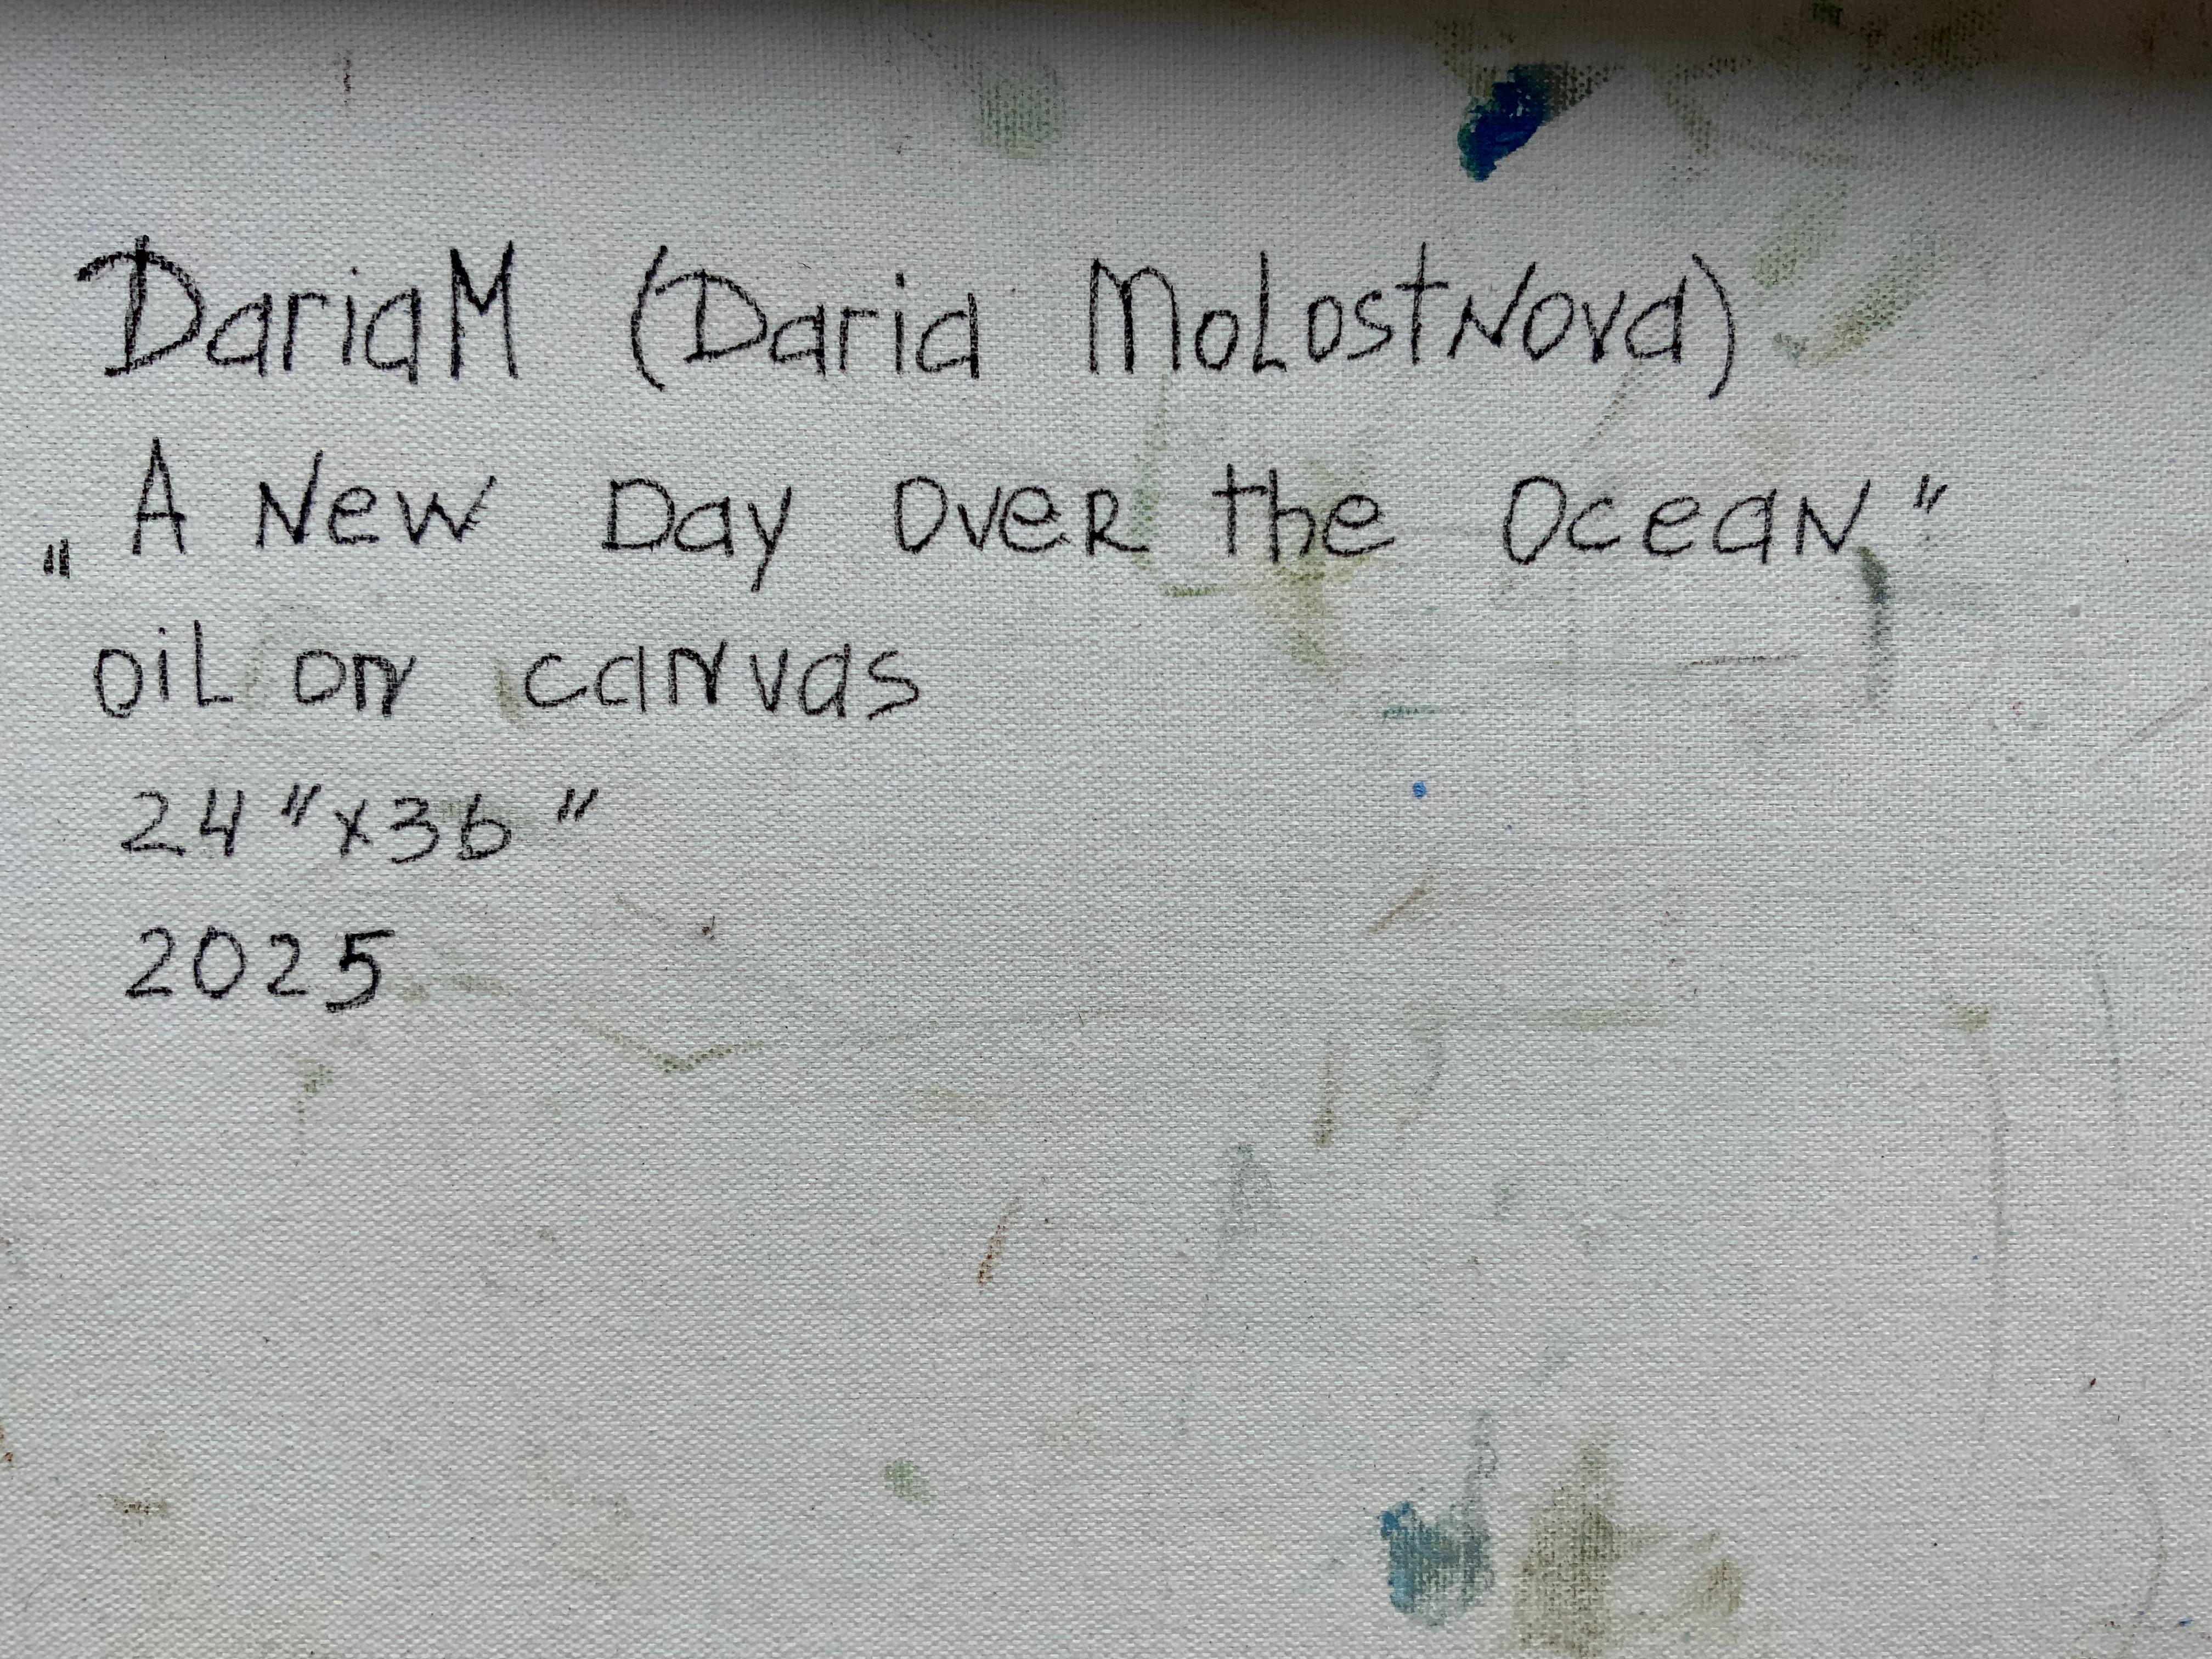 DariaM (Daria MoLostNova)
„A New Day Over the Ocean"
oiL on canvas
24"x36"
2025